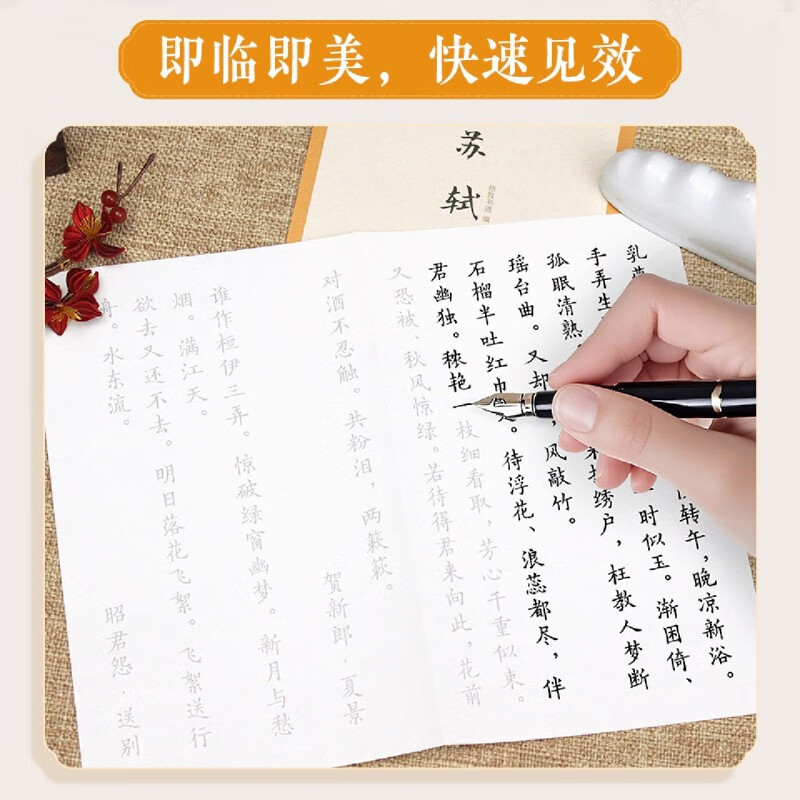 即临即美，快速见效
苏轼
乳燕 转午，晚凉新浴。
手弄生 时似玉。渐困倚、
孤眠清熟 绣户，枉教人梦断
瑶台曲。又却 风敲竹。
石榴半吐红巾 。待浮花、浪蕊都尽，伴
君幽独。秾艳 枝细看取，芳心千重似束。
又恐被、秋风惊绿。若待得君来向此，花前
对酒不忍触。共粉泪，两簌簌。
贺新郎·夏景
谁作桓伊三弄。惊破绿窗幽梦。新月与愁
烟。满江天。
欲去又还不去。明日落花飞絮。飞絮送行
舟。水东流。
昭君怨·送别